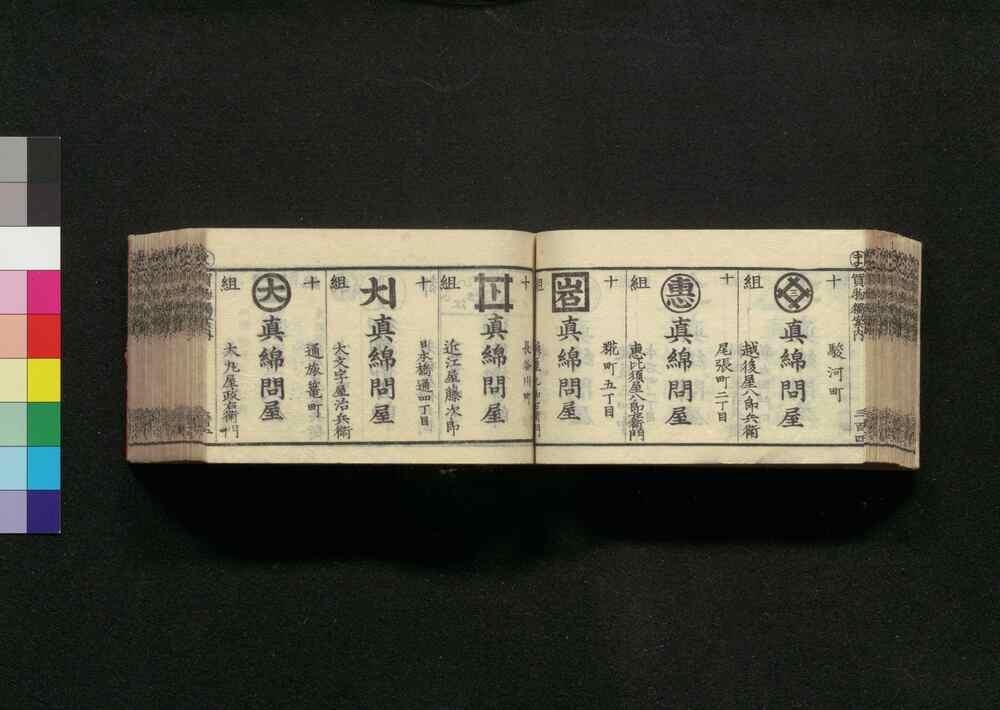 買物獨案内
三百四
十 駿河町
三 真綿問屋
組 越後屋八郎兵衛
十 尾張町二丁目
惠 真綿問屋
組 恵比須屋八郎左衛門
十 麹町五丁目
岩 真綿問屋
組
十 長谷川町
下 真綿問屋
組 近江屋藤次郎
十 日本橋通四丁目
真綿問屋
組 大文字屋治兵衛
十 通旅籠町
大 真綿問屋
組 大丸屋政右衛門